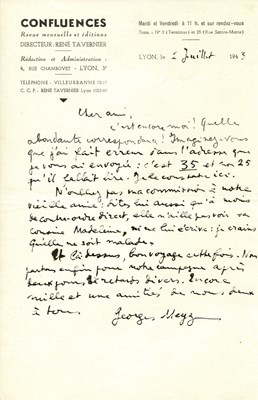 CONFLUENCES
Revue mensuelle et éditions
DIRECTEUR: RENÉ TAVERNIER
Rédaction et Administration:
4, RUE CHAMBOVET - LYON, 3e
TÉLÉPHONE - VILLEURBANNE
C. C. P. - RENÉ TAVERNIER Lyon
Mardi et Vendredi à 11 h. et sur rendez-vous
LYON, le 2 Juillet 1943
Cher ami,
c'est encore moi! Quelle
abondante correspondance! Imaginez-vous
que j'ai fait erreur dans l'adresse que
je vous ai envoyée: c'est 35 et non 25
qu'il fallait lire. Je le constate ici.
N'oubliez pas ma commission à notre
vieille amie: dites lui aussi qu'à moins
de contre-ordre direct, elle n'aille pas voir sa
cousine Madeleine, ni ne lui écrive: je crains
qu'elle ne soit malade.
Et là dessus, bon voyage cette fois. Nous
partons enfin pour notre campagne après
deux jours de retards divers. Encore
mille et une amitiés de nous deux
à tous.
Georges